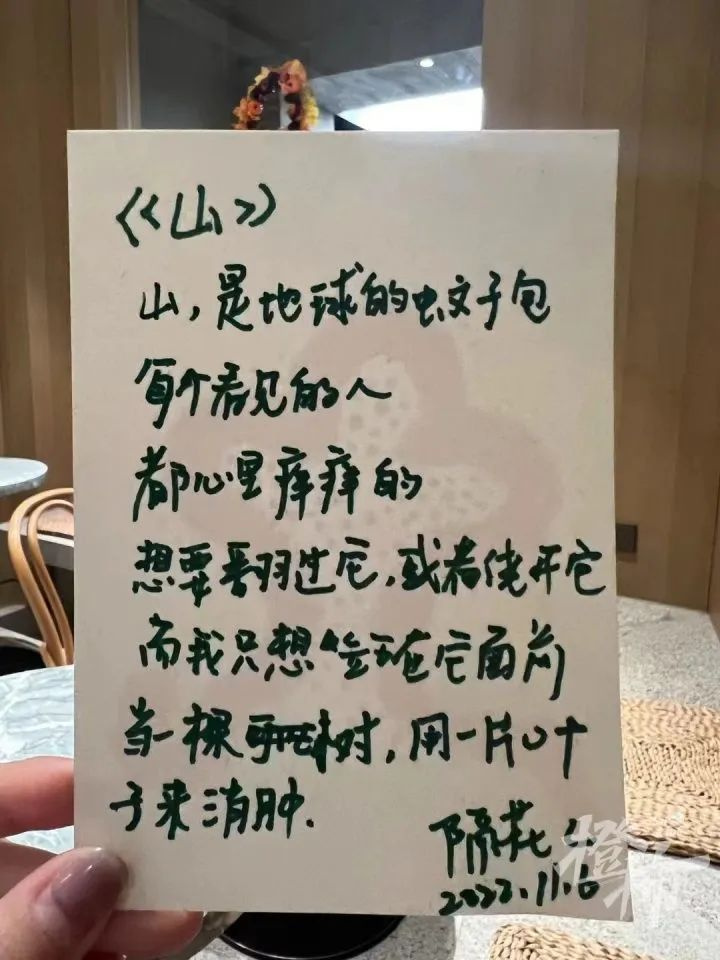 《山》
山，是地球的蚊子包
每个看见的人
都心里痒痒的
想要翻过它，或者绕开它
而我只想坐在它面前
当一棵树，用一片叶
子来消肿.
隔花人
2022.11.6
橙柿